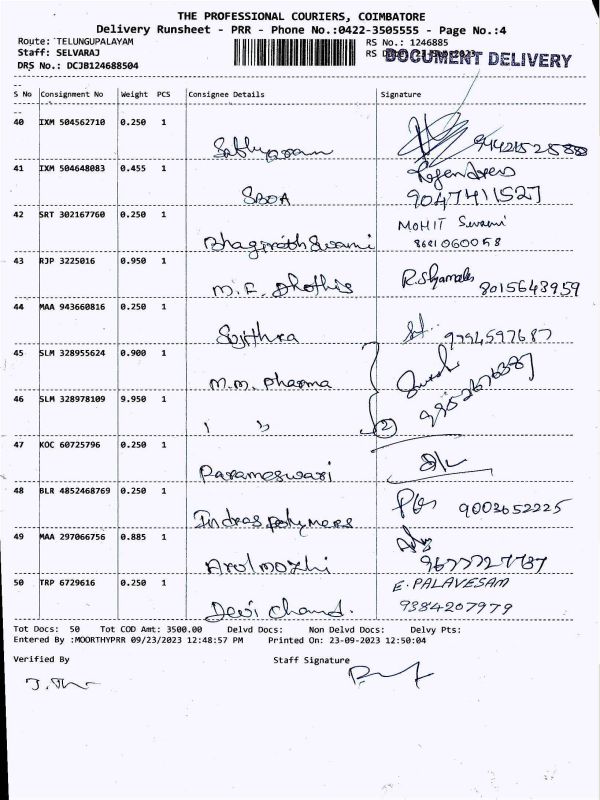 THE PROFESSIONAL COURIERS, COIMBATORE
Delivery Runsheet - PRR - Phone No.:0422-3505555 - Page No.:4
Route: TELUNGUPALAYAM
RS No.: 1246885
Staff: SELVARAJ
RS
DOCUMENT DELIVERY
DRS No.: DCJB124688504
S No Consignment No Weight PCS Consignee Details Signature
40 IXM 504562710 0.250 1
41 IXM 504648083 0.455 1
SBOA 9047411527
42 SRT 302167760 0.250 1 MOHIT Swami
Bhagirath Swami
43 RJP 3225016 0.950 1 R.Shyamala 8015643959
44 MAA 943660816 0.250 1
Sujithra
45 SLM 328955624 0.900 1
M.M. Pharma
46 SLM 328978109 9.950 1
" 2
47 KOC 60725796 0.250 1
Parameswari
48 BLR 4852468769 0.250 1 9003652225
Indras polymers
49 MAA 297066756 0.885 1
Arulmozhi
50 TRP 6729616 0.250 1 E. PALAVESAM
Devi chand. 9384207979
Tot Docs: 50 Tot COD Amt: 3500.00 Delvd Docs: Non Delvd Docs: Delvy Pts:
Entered By :MOORTHYPRR 09/23/2023 12:48:57 PM Printed On: 23-09-2023 12:50:04
Verified By Staff Signature